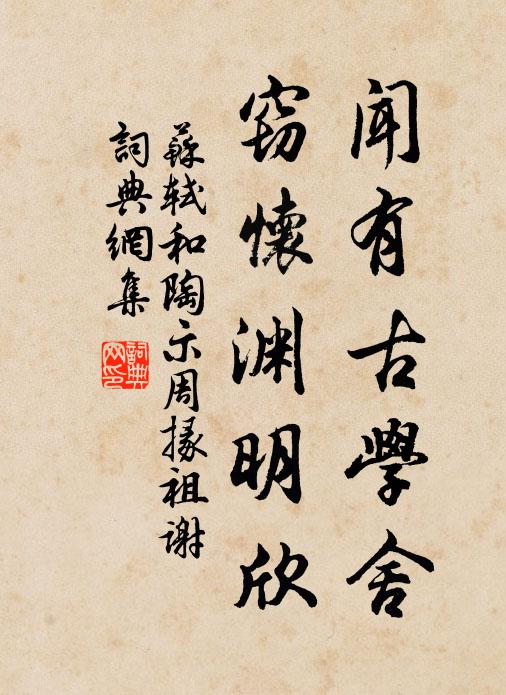 聞有古學舍
竊懷淵明欣
蘇軾和陶示周掾祖謝
詞典網集
詞典
网印